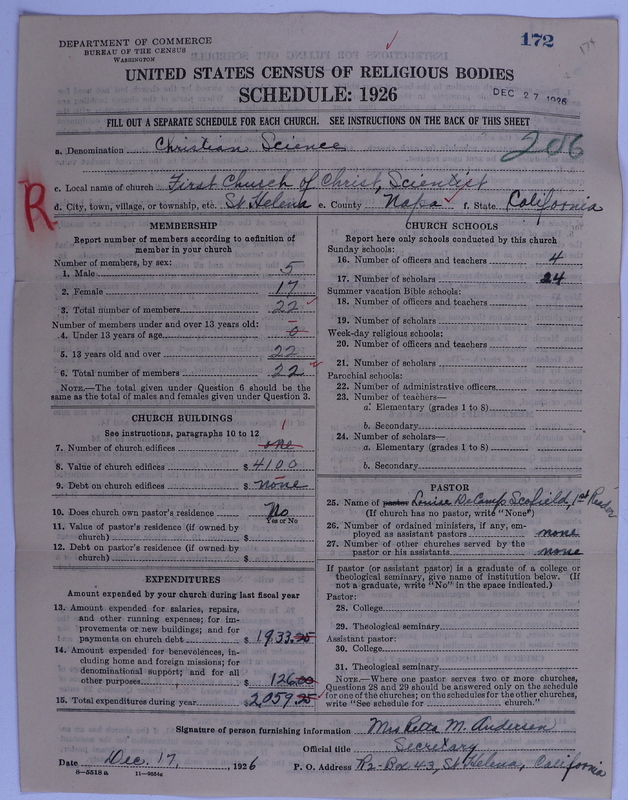 DEPARTMENT OF COMMERCE
BUREAU OF THE CENSUS
WASHINGTON
172
UNITED STATES CENSUS OF RELIGIOUS BODIES
SCHEDULE: 1926
DEC 27 1926
FILL OUT A SEPARATE SCHEDULE FOR EACH CHURCH. SEE INSTRUCTIONS ON THE BACK OF THIS SHEET
a. Denomination Christian Science
206
c. Local name of church First Church of Christ, Scientist
R
d. City, town, village, or township, etc. St Helena e. County Napa f. State California
MEMBERSHIP
Report number of members according to definition of
member in your church
Number of members, by sex:
1. Male 5
2. Female 17
3. Total number of members 22
Number of members under and over 13 years old:
4. Under 13 years of age 0
5. 13 years old and over 22
6. Total number of members 22
NOTE.—The total given under Question 6 should be the
same as the total of males and females given under Question 3.
CHURCH BUILDINGS
See instructions, paragraphs 10 to 12
1
7. Number of church edifices one
8. Value of church edifices $ 4100
9. Debt on church edifices $ none
10. Does church own pastor's residence No
Yes or No
11. Value of pastor's residence (if owned by
church) $
12. Debt on pastor's residence (if owned by
church) $
EXPENDITURES
Amount expended by your church during last fiscal year
13. Amount expended for salaries, repairs,
and other running expenses; for im-
provements or new buildings; and for
payments on church debt $ 1933.25
14. Amount expended for benevolences, in-
cluding home and foreign missions; for
denominational support; and for all
other purposes $ 126.00
15. Total expenditures during year $ 2,059.25
CHURCH SCHOOLS
Report here only schools conducted by this church
Sunday schools:
16. Number of officers and teachers 4
17. Number of scholars 24
Summer vacation Bible schools:
18. Number of officers and teachers
19. Number of scholars
Week-day religious schools:
20. Number of officers and teachers
21. Number of scholars
Parochial schools:
22. Number of administrative officers
23. Number of teachers—
a. Elementary (grades 1 to 8)
b. Secondary
24. Number of scholars—
a. Elementary (grades 1 to 8)
b. Secondary
PASTOR
25. Name of pastor Louise DeCamp Scofield, 1st Reader
(If church has no pastor, write "None")
26. Number of ordained ministers, if any, em-
ployed as assistant pastors none
27. Number of other churches served by the
pastor or his assistants none
If pastor (or assistant pastor) is a graduate of a college or
theological seminary, give name of institution below. (If
not a graduate, write "No" in the space indicated.)
Pastor:
28. College
29. Theological seminary
Assistant pastor:
30. College
31. Theological seminary
NOTE.—Where one pastor serves two or more churches,
Questions 28 and 29 should be answered only on the schedule
for one of the churches; on the schedules for the other churches,
write "See schedule for church."
Signature of person furnishing information Mrs Retta M. Andersen
Official title Secretary
Date Dec. 17, 1926 P. O. Address R2-Box 43, St Helena, California
8—5518a 11—9554a